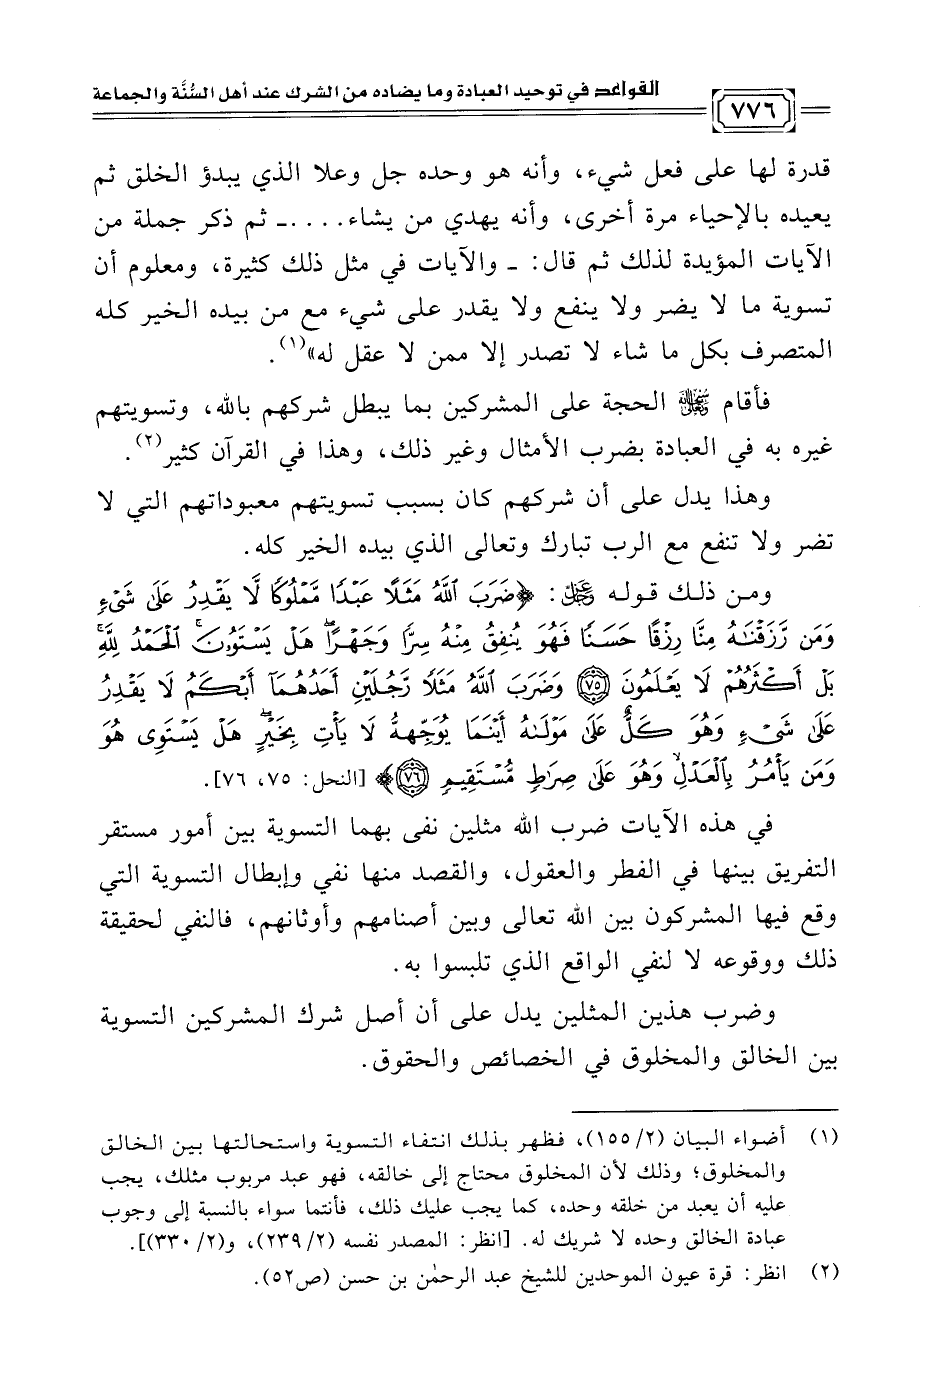 القواعد في توحيد العبادة وما يضاده من الشرك عند أهل السُّنَّة والجماعة
٧٧٦
قدرة لها على فعل شيء، وأنه هو وحده جل وعلا الذي يبدؤ الخلق ثم
يعيده بالإحياء مرة أخرى، وأنه يهدي من يشاء.... ـ ثم ذكر جملة من
الآيات المؤيدة لذلك ثم قال: ـ والآيات في مثل ذلك كثيرة، ومعلوم أن
تسوية ما لا يضر ولا ينفع ولا يقدر على شيء مع من بيده الخير كله
المتصرف بكل ما شاء لا تصدر إلا ممن لا عقل له»(١).
فأقام ﷾ الحجة على المشركين بما يبطل شركهم بالله، وتسويتهم
غيره به في العبادة بضرب الأمثال وغير ذلك، وهذا في القرآن كثير(٢).
وهذا يدل على أن شركهم كان بسبب تسويتهم معبوداتهم التي لا
تضر ولا تنفع مع الرب تبارك وتعالى الذي بيده الخير كله.
ومن ذلك قوله ﷿: ﴿ضَرَبَ ٱللَّهُ مَثَلًا عَبْدًا مَّمْلُوكًا لَّا يَقْدِرُ عَلَىٰ شَيْءٍ
وَمَن رَّزَقْنَٰهُ مِنَّا رِزْقًا حَسَنًا فَهُوَ يُنفِقُ مِنْهُ سِرًّا وَجَهْرًا ۖ هَلْ يَسْتَوُۥنَ ۚ ٱلْحَمْدُ لِلَّهِ ۚ
بَلْ أَكْثَرُهُمْ لَا يَعْلَمُونَ ﴿٧٥﴾ وَضَرَبَ ٱللَّهُ مَثَلًا رَّجُلَيْنِ أَحَدُهُمَآ أَبْكَمُ لَا يَقْدِرُ
عَلَىٰ شَيْءٍ وَهُوَ كَلٌّ عَلَىٰ مَوْلَىٰهُ أَيْنَمَا يُوَجِّههُّ لَا يَأْتِ بِخَيْرٍ ۖ هَلْ يَسْتَوِى هُوَ
وَمَن يَأْمُرُ بِٱلْعَدْلِ ۙ وَهُوَ عَلَىٰ صِرَٰطٍ مُّسْتَقِيمٍ ﴿٧٦﴾﴾ [النحل: ٧٥، ٧٦].
في هذه الآيات ضرب الله مثلين نفى بهما التسوية بين أمور مستقر
التفريق بينها في الفطر والعقول، والقصد منها نفي وإبطال التسوية التي
وقع فيها المشركون بين الله تعالى وبين أصنامهم وأوثانهم، فالنفي لحقيقة
ذلك ووقوعه لا لنفي الواقع الذي تلبسوا به.
وضرب هذين المثلين يدل على أن أصل شرك المشركين التسوية
بين الخالق والمخلوق في الخصائص والحقوق.
(١) أضواء البيان (١٥٥/٢)، فظهر بذلك انتفاء التسوية واستحالتها بين الخالق
والمخلوق؛ وذلك لأن المخلوق محتاج إلى خالقه، فهو عبد مربوب مثلك، يجب
عليه أن يعبد من خلقه وحده، كما يجب عليك ذلك، فأنتما سواء بالنسبة إلى وجوب
عبادة الخالق وحده لا شريك له. [انظر: المصدر نفسه (٢٣٩/٢)، و(٣٣٠/٢)].
(٢) انظر: قرة عيون الموحدين للشيخ عبد الرحمٰن بن حسن (ص٥٢).